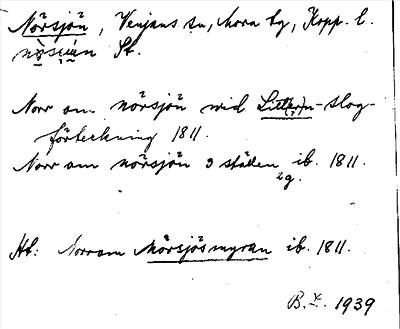 Nörsjön, Venjans sn, Mora tg, Kopp. l.
St.
Norr om nörsjön wid Litter(?)n-slog-
förteckning 1811.
Norr om nörsjön 3 ställen ib. 1811.
2g.
Hb: Norr om Mörsjösmyran ib. 1811.
B. V. 1939